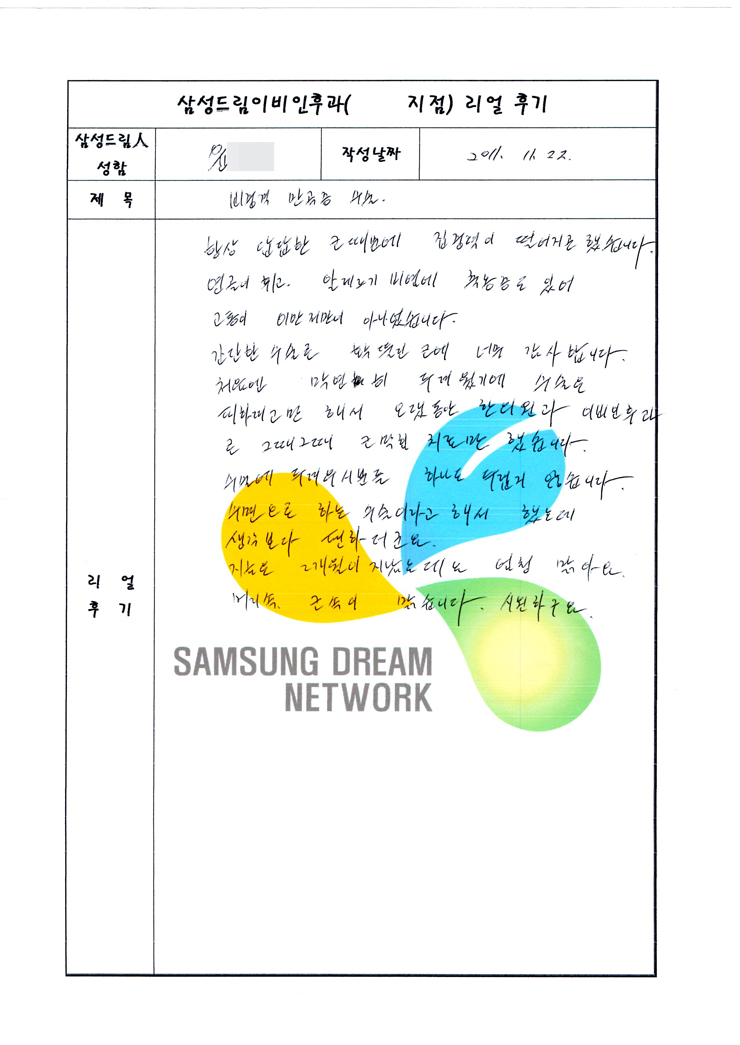 삼성드림이비인후과( 지점) 리얼 후기
삼성드림人
성함
작성날짜
2011. 11. 22.
제 목
비중격 만곡증 수술.
항상 답답한 코 때문에 집중력이 떨어지곤 했습니다.
연골이 휘고. 알레르기 비염에 축농증도 있어
고통이 이만저만이 아니었습니다.
간단한 수술로 뻥 뚫린 코에 너무 감사합니다.
처음엔 막연히 두려웠기에 수술은
피하려고만 해서 오랫동안 한의원과 이비인후과
로 그때그때 코막힘 치료만 했습니다.
수면에 두려워시분들 하나도 두렵지 않습니다.
수면으로 하는 수술이라고 해서 했는데
생각보다 편하더군요.
지금은 2개월이 지났는데요 엄청 맑아요.
머리속. 코 속이 맑습니다. 시원하구요.
리 얼
후 기
SAMSUNG DREAM
NETWORK